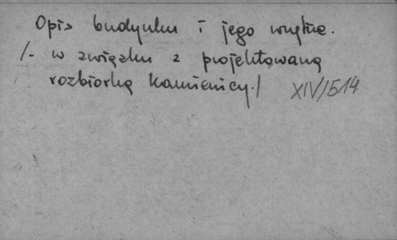 Opis budynku i jego wnętrz.
/- w związku z projektowaną
rozbiórką kamienicy./ XIV/514